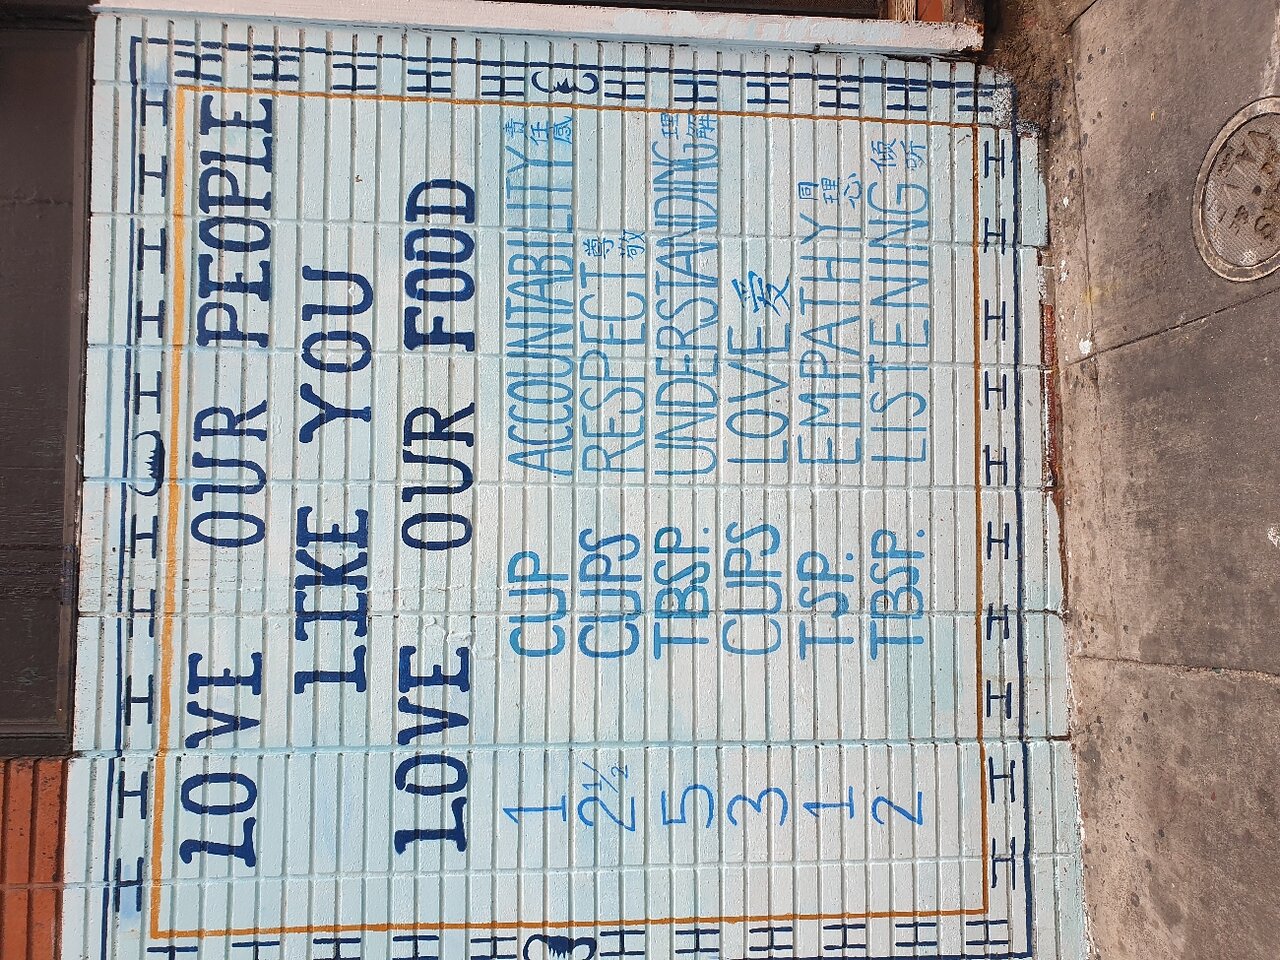 LOVE OUR PEOPLE
LIKE YOU
LOVE OUR FOOD
1 CUP ACCOUNTABILITY 責任感
2 1/2 CUPS RESPECT 尊敬
5 TBSP. UNDERSTANDING 理解
3 CUPS LOVE 爱
1 TSP. EMPATHY 同理心
2 TBSP. LISTENING 倾听